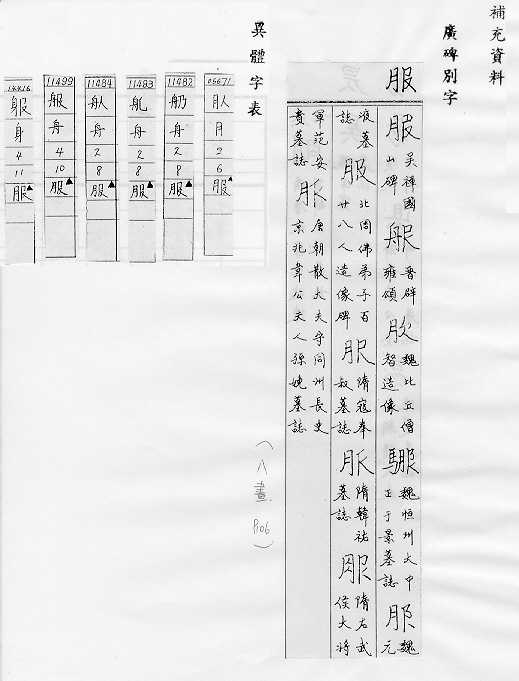 補充資料
廣碑別字
服
服 吳禪國山碑 晉辟雍頌 魏比丘僧智造像 魏恒州大中正于景墓誌 魏元
液墓誌 服 北周佛弟子百廿八人造像碑 隋寇奉叔墓誌 隋韓祐墓誌 隋右武侯大將
軍范安貴墓誌 唐朝散大夫守同州長史京兆韋公夫人孫娩墓誌
(八畫 P106)
異體字表
05671 月 2 6 服▲
11482 舟 2 8 服▲
11483 舟 2 8 服▲
11484 舟 2 8 服▲
11499 舟 4 10 服▲
14416 身 4 11 服▲